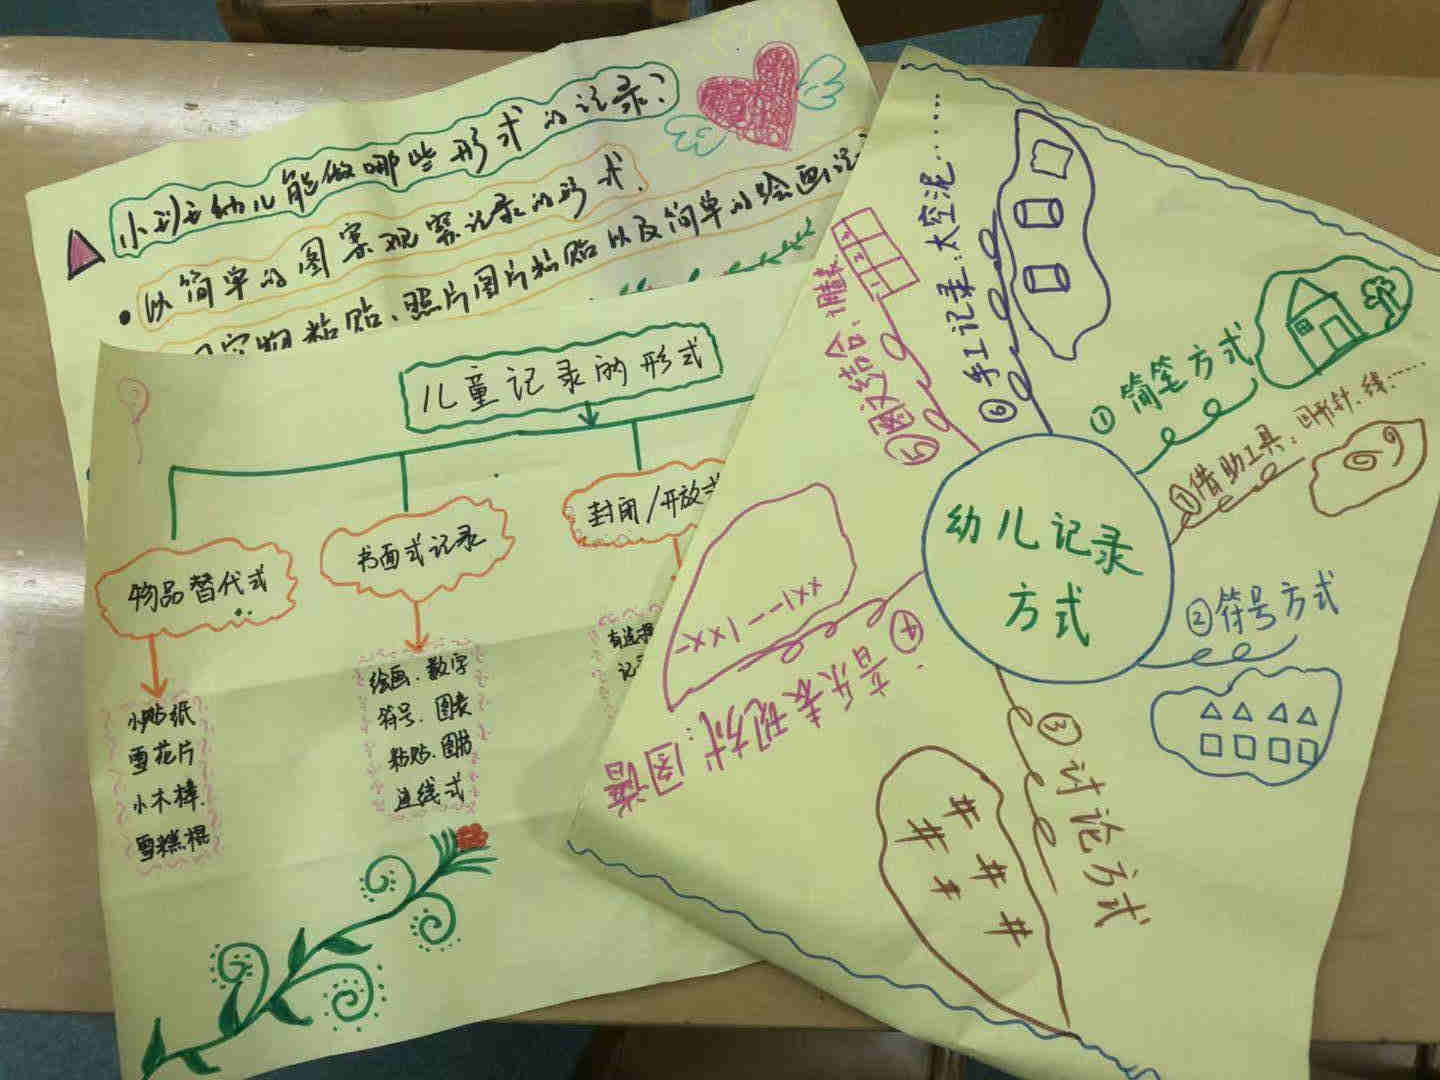 小班幼儿能做哪些形式的记录?
以简单的图案观察记录的形式.
实物粘贴、照片图片粘贴以及简单的绘画记
儿童记录的形式
物品替代式
小贴纸
雪花片
小木棒.
雪糕棍
书面式记录
绘画.数字
符号.图表
粘贴.图书
连线式
封闭/开放式
有选择
记
幼儿记录
方式
①简笔方式
②符号方式
③讨论方式
④音乐表现方式:图谱
⑤图文结合:
⑥手工记录:太空泥……
⑦借助工具:回形针、线……